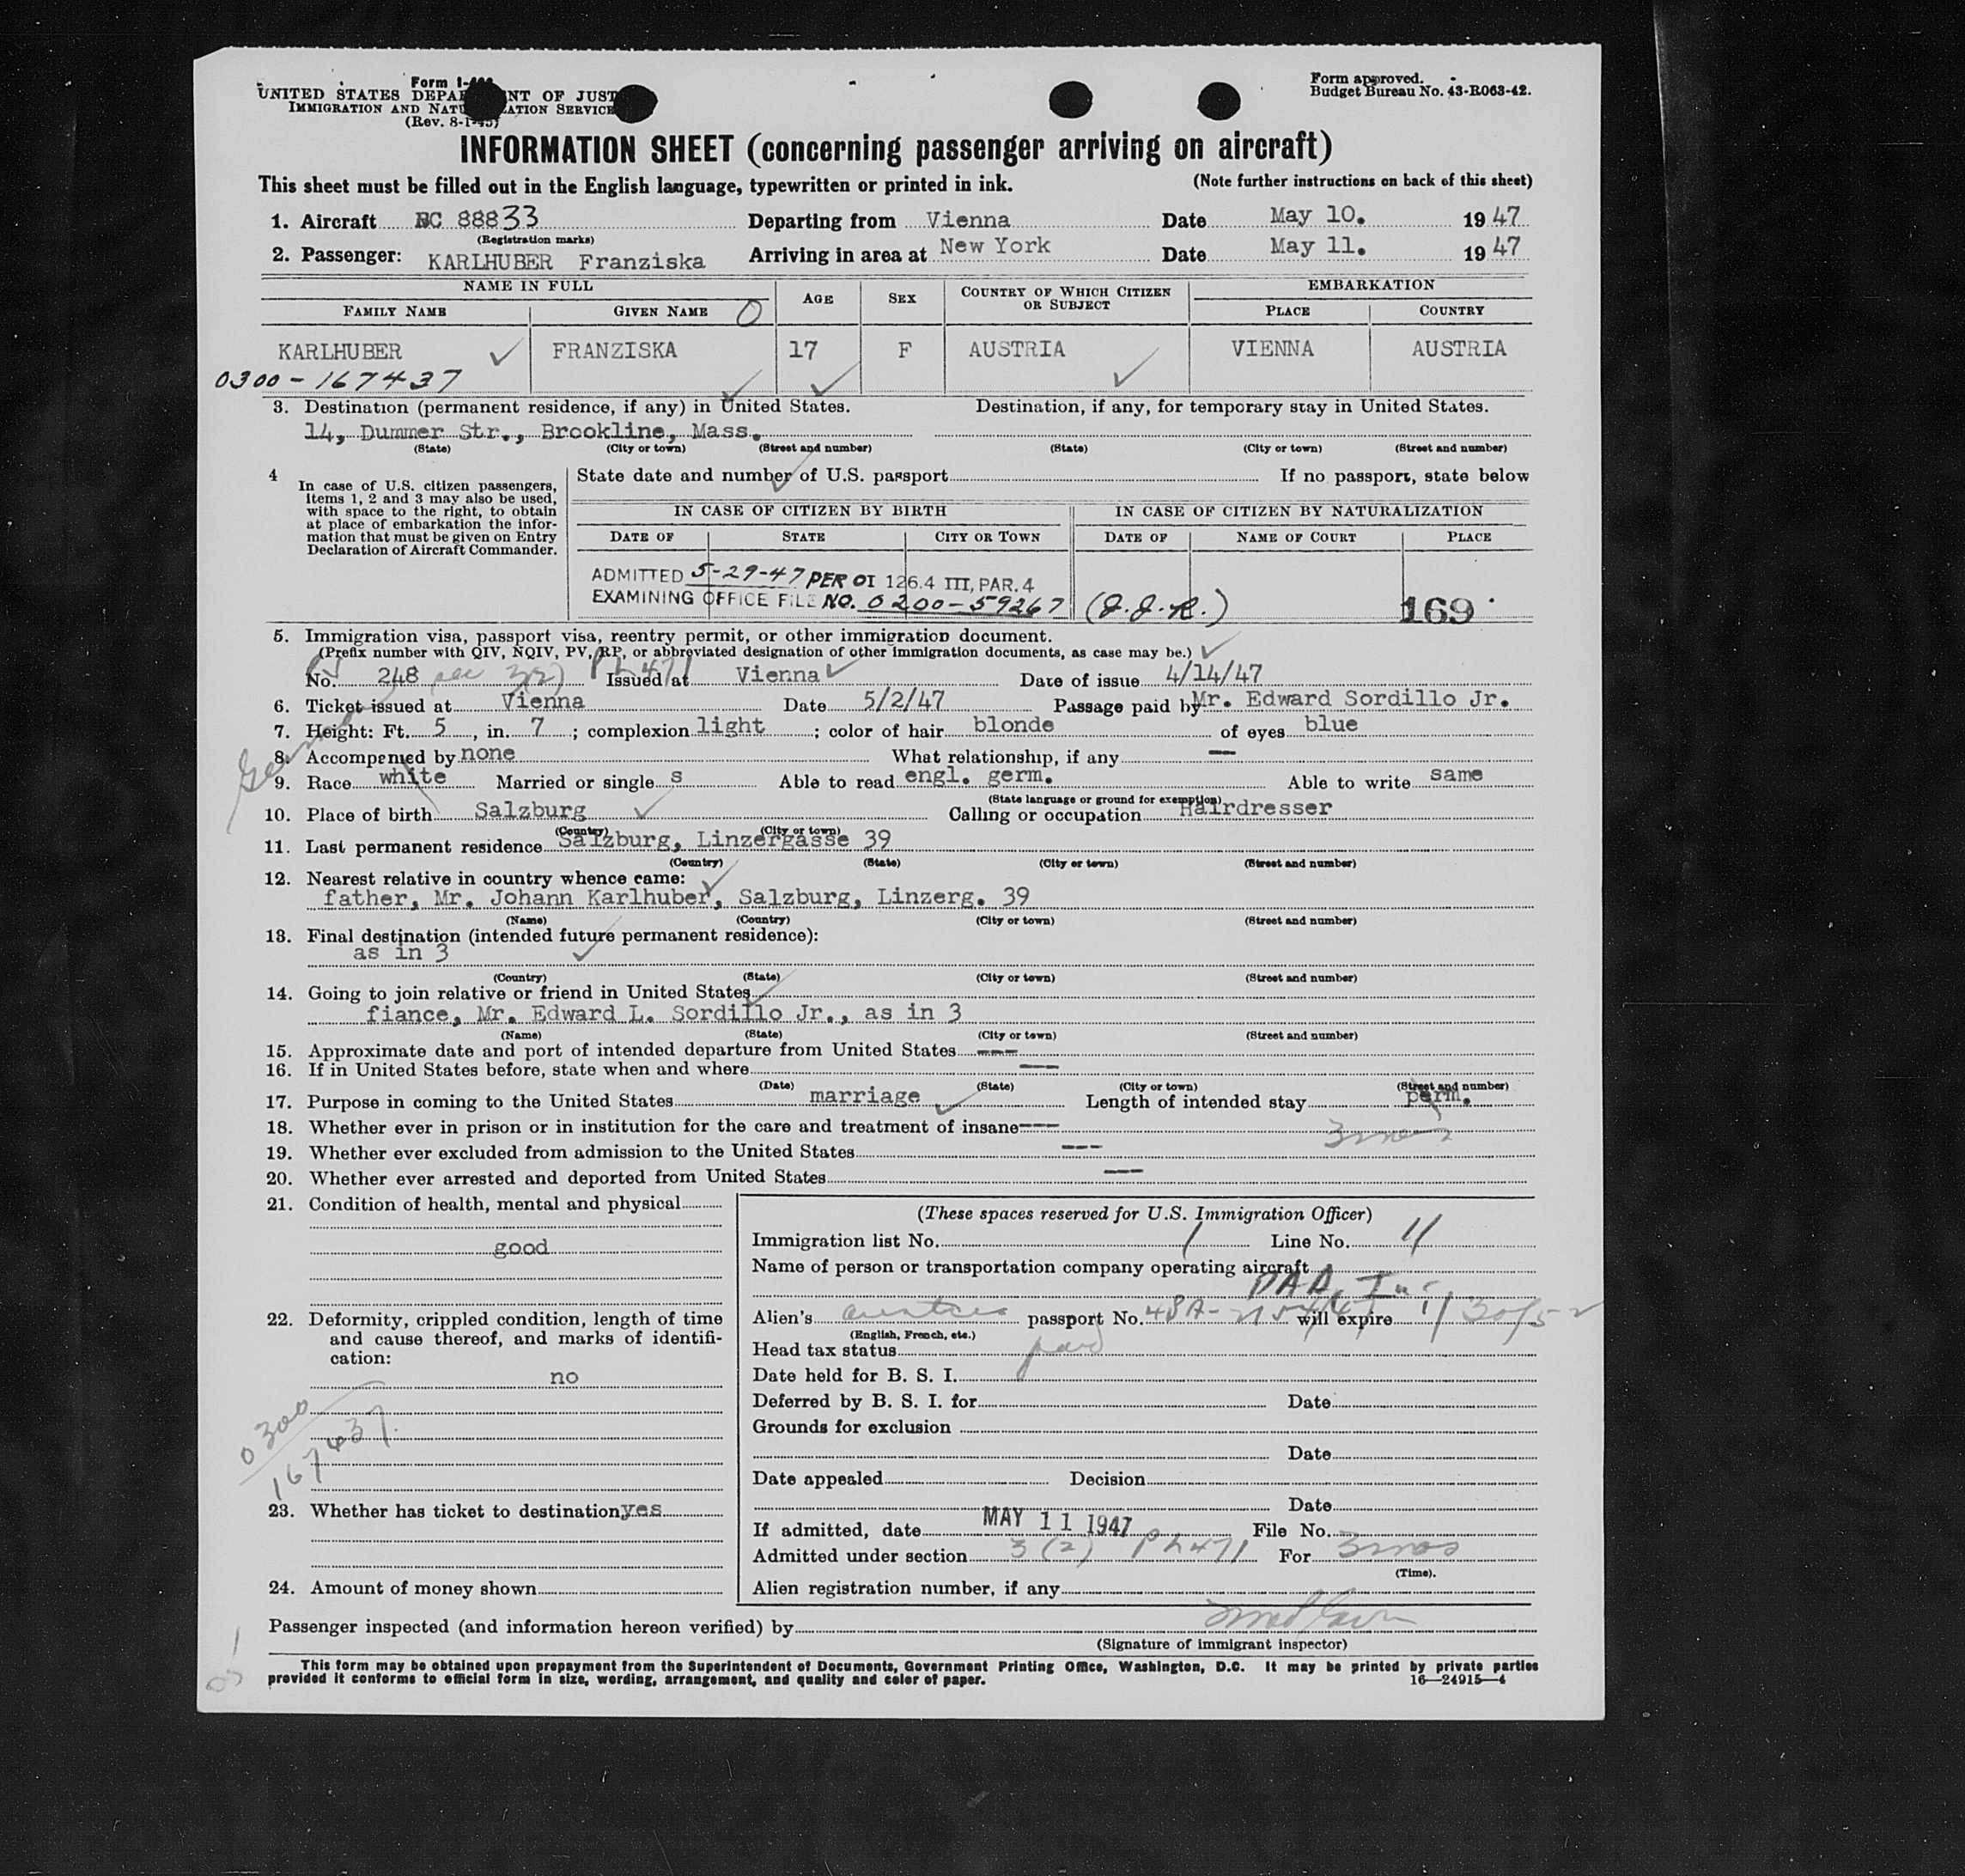 Form I-466
UNITED STATES DEPARTMENT OF JUSTICE
IMMIGRATION AND NATURALIZATION SERVICE
(Rev. 8-1-45)
Form approved.
Budget Bureau No. 43-R063-42.
INFORMATION SHEET (concerning passenger arriving on aircraft)
This sheet must be filled out in the English language, typewritten or printed in ink. (Note further instructions on back of this sheet)
1. Aircraft NC 88833 Departing from Vienna Date May 10. 1947
(Registration marks)
2. Passenger: KARLHUBER Franziska Arriving in area at New York Date May 11. 1947
NAME IN FULL AGE SEX COUNTRY OF WHICH CITIZEN OR SUBJECT EMBARKATION
FAMILY NAME GIVEN NAME PLACE COUNTRY
KARLHUBER FRANZISKA 17 F AUSTRIA VIENNA AUSTRIA
0300-167437
3. Destination (permanent residence, if any) in United States. Destination, if any, for temporary stay in United States.
14, Dummer Str., Brookline, Mass.
(State) (City or town) (Street and number) (State) (City or town) (Street and number)
4 In case of U.S. citizen passengers, items 1, 2 and 3 may also be used, with space to the right, to obtain at place of embarkation the information that must be given on Entry Declaration of Aircraft Commander.
State date and number of U.S. passport If no passport, state below
IN CASE OF CITIZEN BY BIRTH IN CASE OF CITIZEN BY NATURALIZATION
DATE OF STATE CITY OR TOWN DATE OF NAME OF COURT PLACE
ADMITTED 5-29-47 PER OI 126.4 III, PAR. 4
EXAMINING OFFICE FILE NO. 0200-59267 (J.J.R.) 169
5. Immigration visa, passport visa, reentry permit, or other immigration document.
(Prefix number with QIV, NQIV, PV, RP, or abbreviated designation of other immigration documents, as case may be.)
PV No. 248 sec 3(2) PL 471 Issued at Vienna Date of issue 4/14/47
6. Ticket issued at Vienna Date 5/2/47 Passage paid by Mr. Edward Sordillo Jr.
7. Height: Ft. 5, in. 7; complexion light; color of hair blonde of eyes blue
8. Accompanied by none What relationship, if any —
9. Race white Married or single s Able to read engl. germ. Able to write same
(State language or ground for exemption)
10. Place of birth Salzburg Calling or occupation Hairdresser
(Country) (City or town)
11. Last permanent residence Salzburg, Linzergasse 39
(Country) (State) (City or town) (Street and number)
12. Nearest relative in country whence came:
father, Mr. Johann Karlhuber, Salzburg, Linzerg. 39
(Name) (Country) (City or town) (Street and number)
13. Final destination (intended future permanent residence):
as in 3
(Country) (State) (City or town) (Street and number)
14. Going to join relative or friend in United States
fiance, Mr. Edward L. Sordillo Jr., as in 3
(Name) (State) (City or town) (Street and number)
15. Approximate date and port of intended departure from United States ---
16. If in United States before, state when and where ---
(Date) (State) (City or town) (Street and number)
17. Purpose in coming to the United States marriage Length of intended stay perm.
18. Whether ever in prison or in institution for the care and treatment of insane --- 3 mos
19. Whether ever excluded from admission to the United States ---
20. Whether ever arrested and deported from United States ---
21. Condition of health, mental and physical
good
22. Deformity, crippled condition, length of time and cause thereof, and marks of identification:
no
0300
167437
23. Whether has ticket to destination yes
24. Amount of money shown
(These spaces reserved for U.S. Immigration Officer)
Immigration list No. 1 Line No. 11
Name of person or transportation company operating aircraft
Alien's passport No. will expire
(English, French, etc.)
Head tax status paid
Date held for B. S. I.
Deferred by B. S. I. for Date
Grounds for exclusion
Date
Date appealed Decision
Date
If admitted, date MAY 11 1947 File No.
Admitted under section 3(2) PL 471 For 3 mos
(Time).
Alien registration number, if any
Passenger inspected (and information hereon verified) by
(Signature of immigrant inspector)
This form may be obtained upon prepayment from the Superintendent of Documents, Government Printing Office, Washington, D.C. It may be printed by private parties
provided it conforms to official form in size, wording, arrangement, and quality and color of paper. 16—24915—4